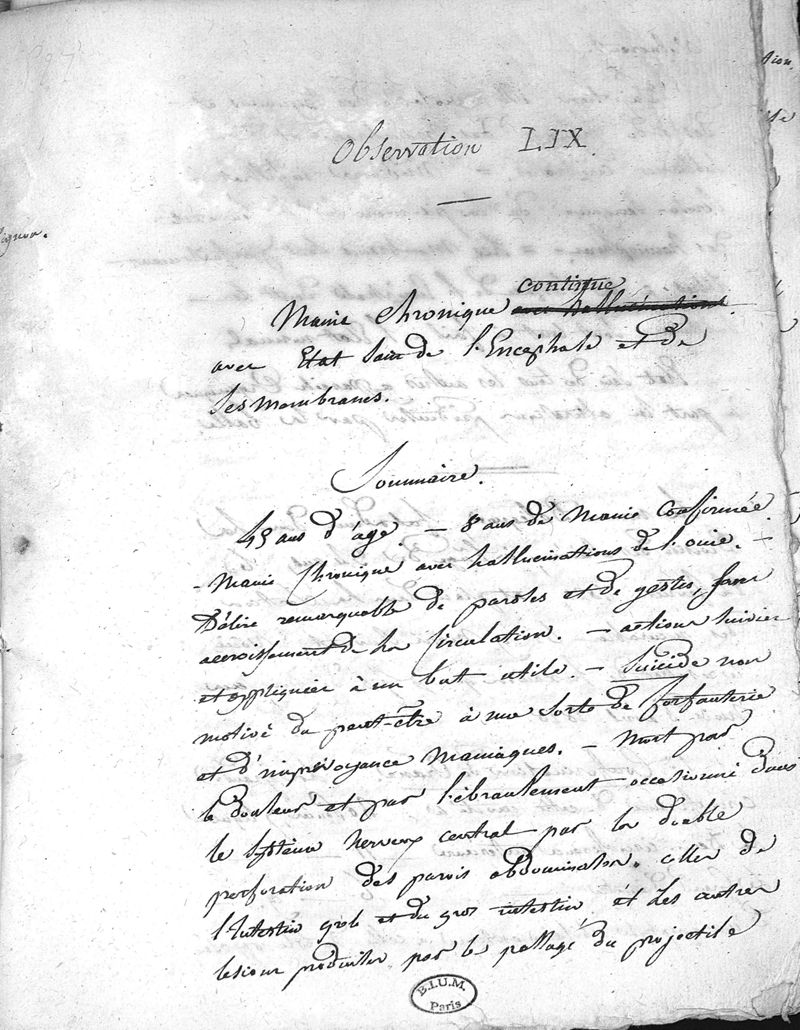 Observation LIX.
Manie chronique continue avec hallucinations.
avec Etat sain de l'Encéphale et de
ses membranes.
Sommaire.
45 ans d'age. — 8 ans de Manie confirmée
- Manie Chronique avec hallucinations de l'ouie. —
Délire remarquable de paroles et de gestes, sans
accroissement de la Circulation. — actions suivies
et appliquées à un but utile. — Suicide non
motivé du peut-être à une sorte de forfanterie
et d'imprévoyance maniaques. — Mort par
la douleur et par l'ébranlement occasionné dans
le système nerveux central par la double
perforation des parois abdominales, celles de
l'Intestin grele et du gros intestin et les autres
lesions produites par le passage du projectile
tion.
B.I.U.M.
Paris